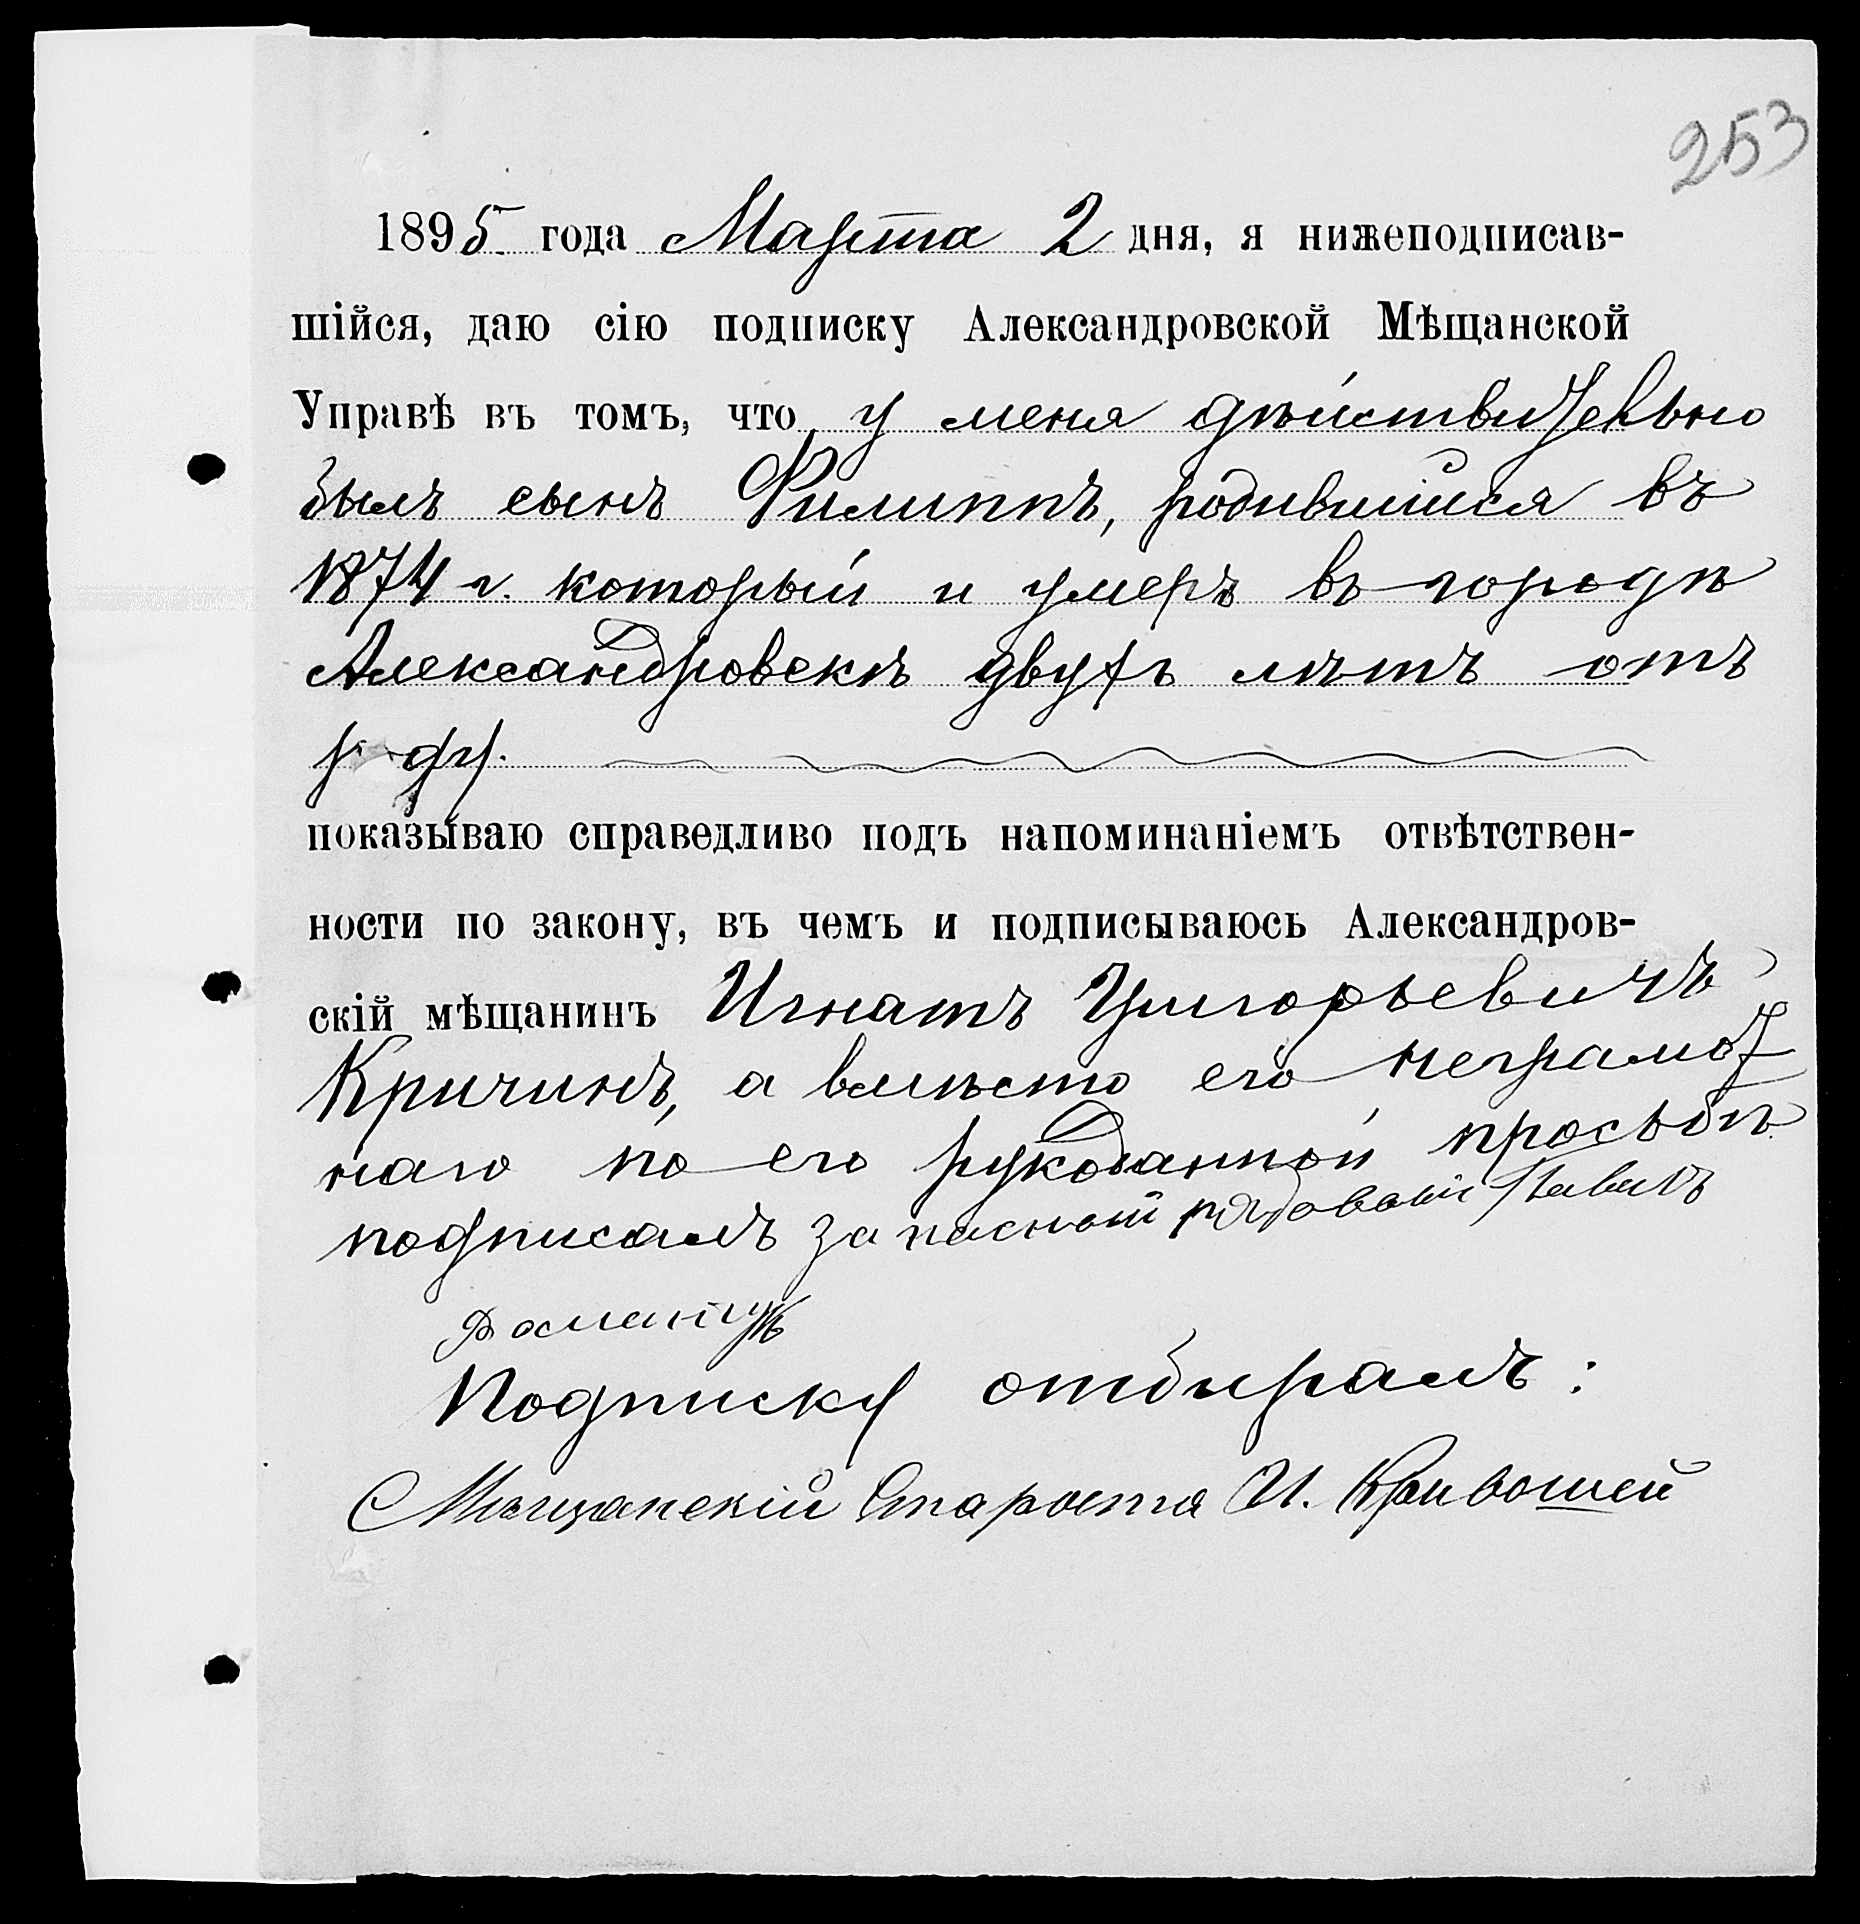 253
1895 года Марта 2 дня, я нижеподписав-
шійся, даю сію подписку Александровской Мѣщанской
Управѣ въ томъ, что у меня дѣйствительно
былъ сынъ Филиппъ, родившійся въ
1874 г. который и умеръ въ городѣ
Александровскѣ двухъ лѣтъ отъ
роду.
показываю справедливо подъ напоминаніемъ отвѣтствен-
ности по закону, въ чемъ и подписываюсь Александров-
скій мѣщанинъ Игнатъ Григорьевичъ
Кричинъ, а вмѣсто его неграмот
наго по его рукоданной просьбѣ
подписалъ запасной рядовой
Подписку отбиралъ:
Мѣщанскій Староста И. Кривошей